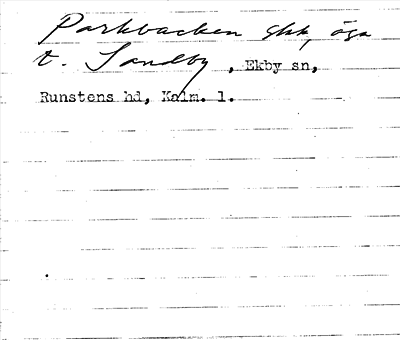 Parkbacken shk, äga
t. Sandby, Ekby sn,
Runstens hd, Kalm. l.